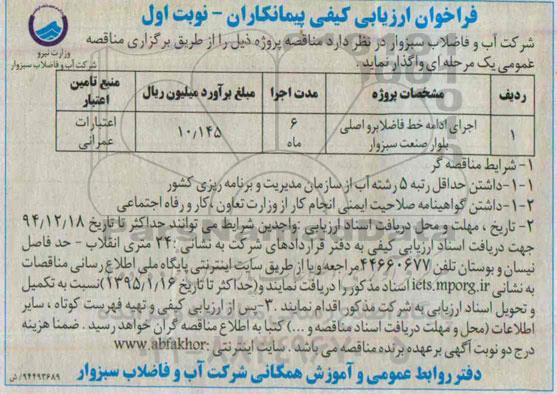 فراخوان ارزیابی کیفی پیمانکاران - نوبت اول
وزارت نیرو
شرکت آب و فاضلاب سبزوار
شرکت آب و فاضلاب سبزوار در نظر دارد مناقصه پروژه ذیل را از طریق برگزاری مناقصه
عمومی یک مرحله ای واگذار نماید.
ردیف مشخصات پروژه مدت اجرا مبلغ برآورد میلیون ریال منبع تامین اعتبار
۱ اجرای ادامه خط فاضلابرو اصلی بلوار صنعت سبزوار ۶ ماه ۱۰/۱۴۵ اعتبارات عمرانی
۱- شرایط مناقصه گر
۱-۱-داشتن حداقل رتبه ۵ رشته آب از سازمان مدیریت و برنامه ریزی کشور
۱-۲-داشتن گواهینامه صلاحیت ایمنی انجام کار از وزارت تعاون ،کار و رفاه اجتماعی
۲- تاریخ ، مهلت و محل دریافت اسناد ارزیابی .واجدین شرایط می توانند حداکثر تا تاریخ ۹۴/۱۲/۱۸
جهت دریافت اسناد ارزیابی کیفی به دفتر قراردادهای شرکت به نشانی :۲۴ متری انقلاب - حد فاصل
نیسان و بوستان تلفن ۴۴۶۶۰۶۷۷ مراجعه و یا از طریق سایت اینترنتی پایگاه ملی اطلاع رسانی مناقصات
به نشانی iets.mporg.ir اسناد مذکور را دریافت نمایند و(حداکثر تا تاریخ ۱۳۹۵/۱/۱۶)نسبت به تکمیل
و تحویل اسناد ارزیابی به شرکت مذکور اقدام نمایند .۳-پس از ارزیابی کیفی و تهیه فهرست کوتاه ، سایر
اطلاعات (محل و مهلت دریافت اسناد مناقصه و ...) کتبا به اطلاع مناقصه گران خواهد رسید . ضمنا هزینه
درج دو نوبت آگهی بر عهده برنده مناقصه می باشد . سایت اینترنتی :www.abfakhor
دفتر روابط عمومی و آموزش همگانی شرکت آب و فاضلاب سبزوار
۹۴۴۹۳۶۸۹/ش